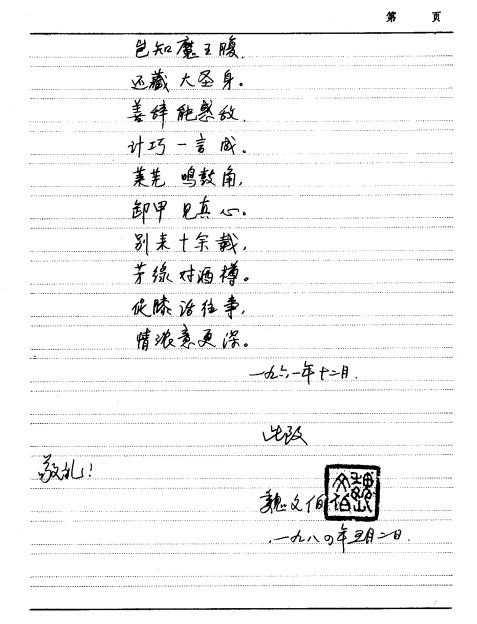 第 页
岂知魔王腹,
还藏大圣身。
姜辞能惑敌,
计巧一言成。
莱芜鸣鼓角,
卸甲见真心。
别来十余载,
茅缘对酒樽。
促膝话往事,
情浓意更深。
一九六一年十二月.
此致
敬礼!
魏文伯
魏文伯
一九八四年三月二日.